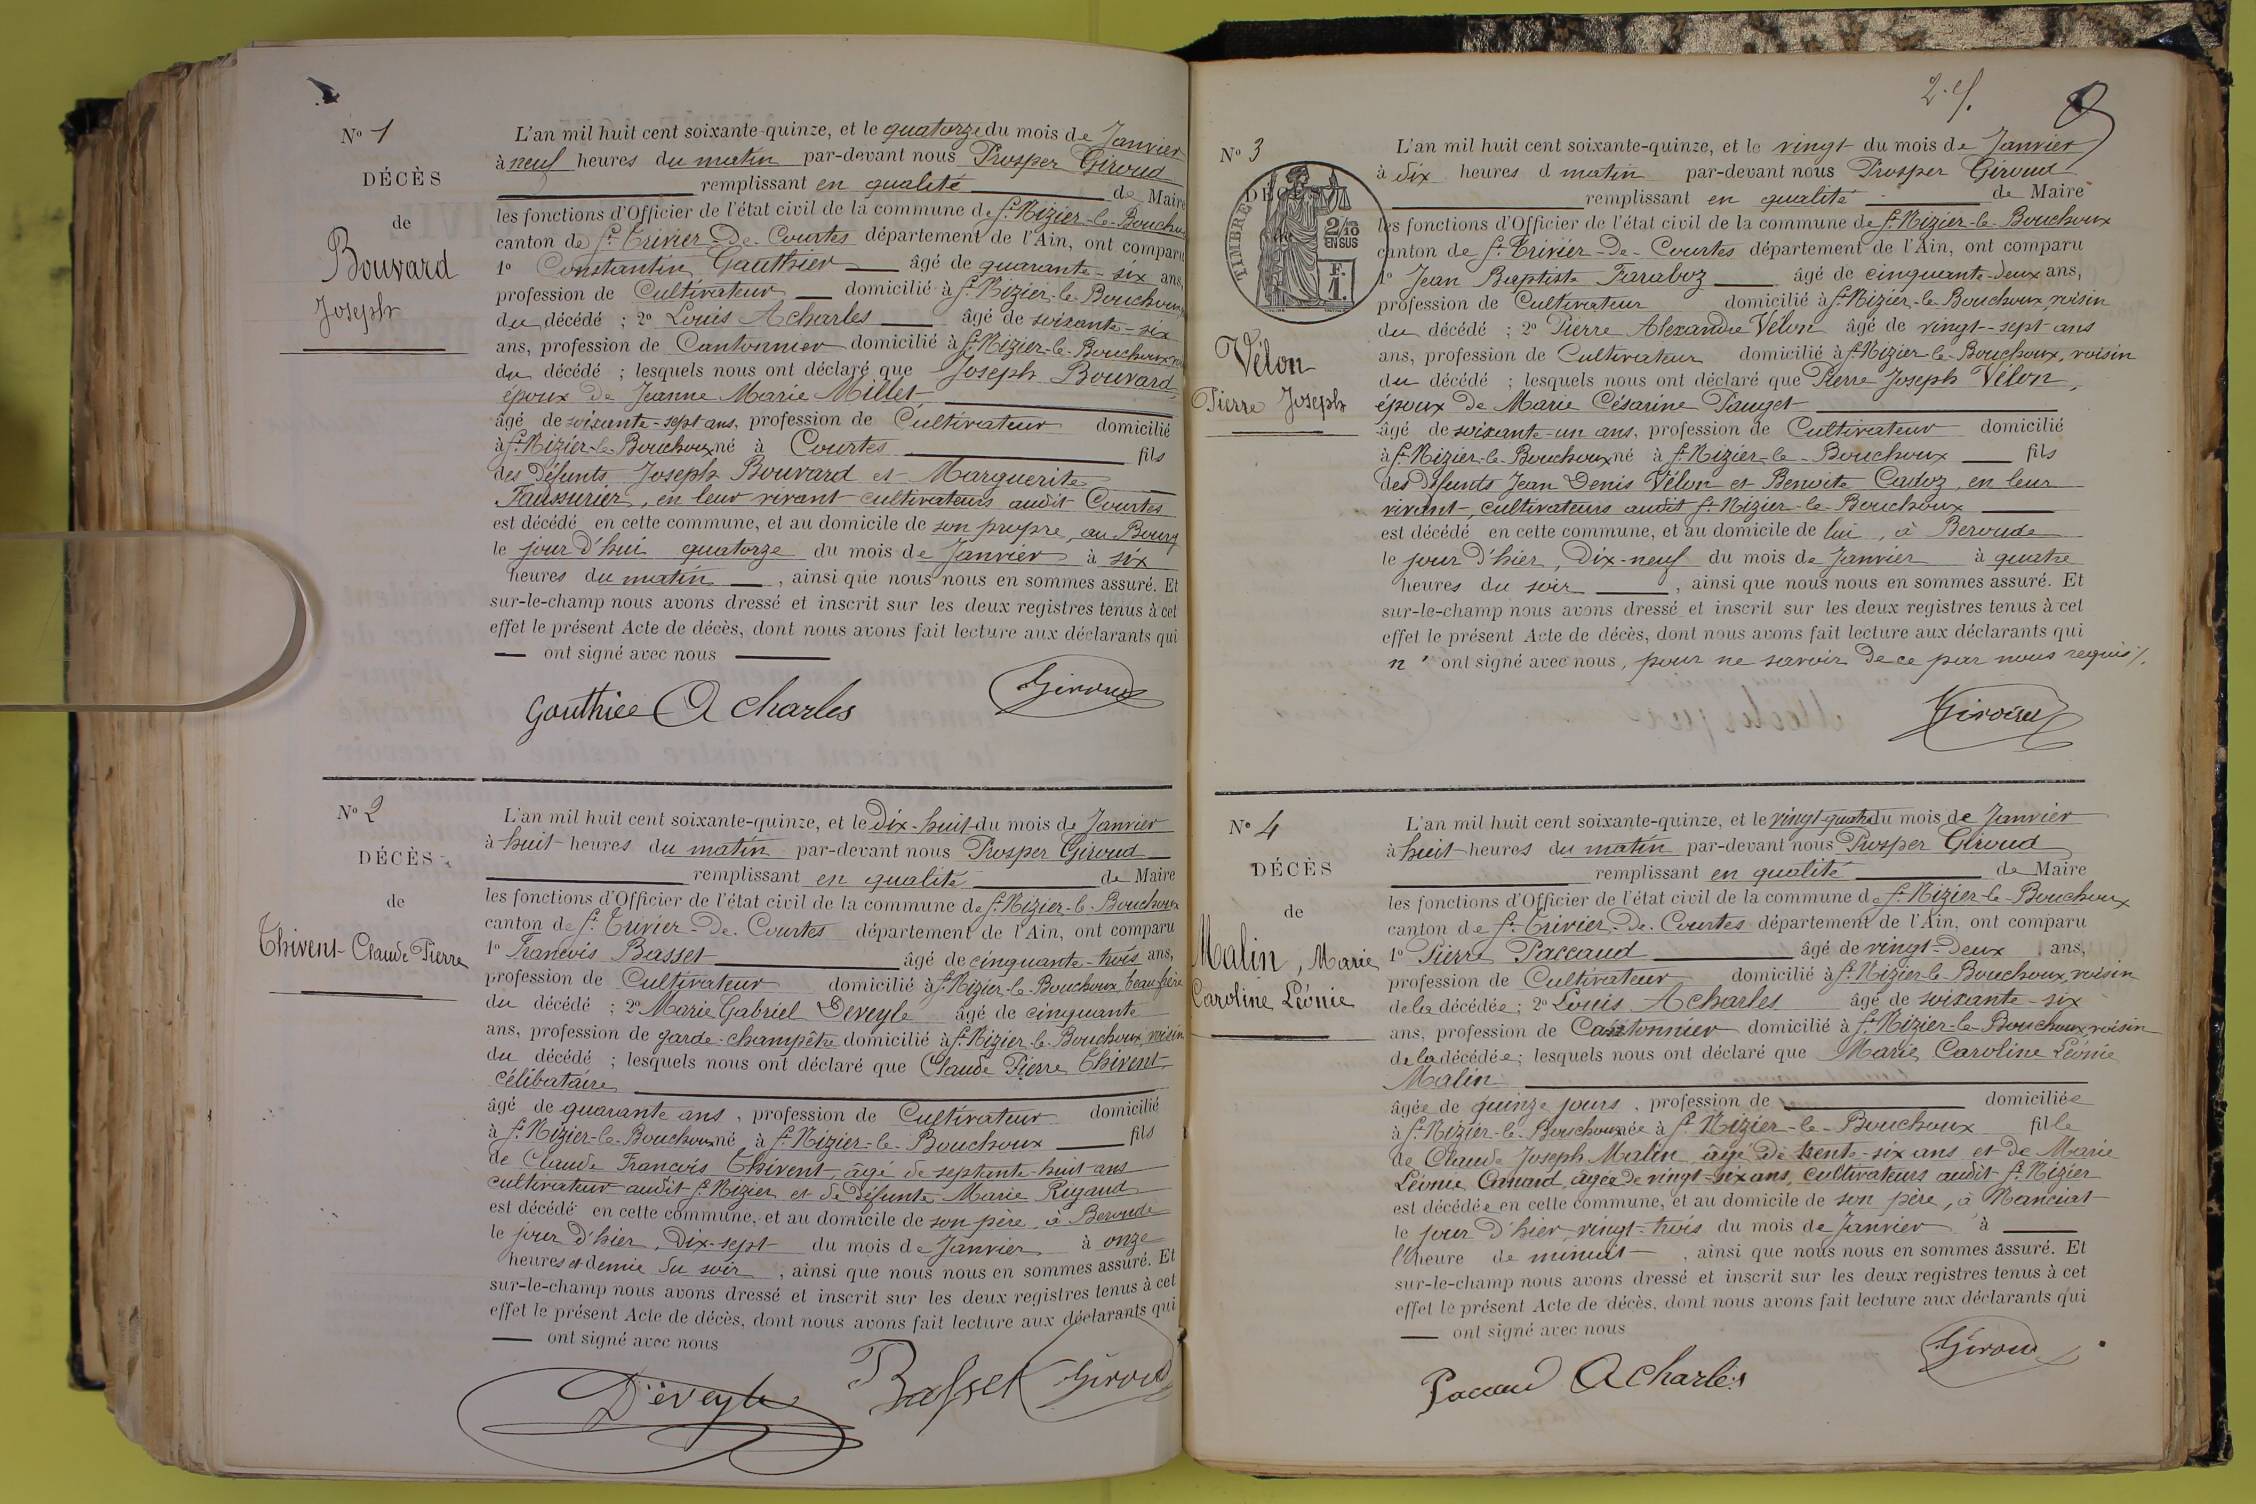 N° 1
DÉCÈS
de
Bouvard
Joseph
L'an mil huit cent soixante-quinze, et le quatorze du mois de Janvier
à neuf heures du matin par-devant nous Prosper Giroud
remplissant en qualité de Maire
les fonctions d'Officier de l'état civil de la commune de St. Nizier-le-Bouchoux
canton de St. Trivier-De-Courtes département de l'Ain, ont comparu
1° Constantin Gauthier âgé de quarante-six ans,
profession de Cultivateur domicilié à St. Nizier-le-Bouchoux,
du décédé ; 2° Louis Acharles âgé de soixante-six
ans, profession de Cantonnier domicilié à St. Nizier-le-Bouchoux
du décédé ; lesquels nous ont déclaré que Joseph Bouvard
époux de Jeanne Marie Millet,
âgé de soixante-sept ans, profession de Cultivateur domicilié
à St. Nizier-le-Bouchoux né à Courtes fils
des Défunts Joseph Bouvard et Marguerite
Faussurier, en leur vivant cultivateurs audit Courtes
est décédé en cette commune, et au domicile de son propre, au Bourg
le jour d'hui quatorze du mois de Janvier à six
heures du matin , ainsi que nous nous en sommes assuré. Et
sur-le-champ nous avons dressé et inscrit sur les deux registres tenus à cet
effet le présent Acte de décès, dont nous avons fait lecture aux déclarants qui
ont signé avec nous
Gouthiee Acharles Giroud
N° 2
DÉCÈS
de
Thivent Claude Pierre
L'an mil huit cent soixante-quinze, et le Dix-huit du mois de Janvier
à huit heures du matin par-devant nous Prosper Giroud
remplissant en qualité de Maire
les fonctions d'Officier de l'état civil de la commune de St. Nizier-le-Bouchoux
canton de St. Trivier-De-Courtes département de l'Ain, ont comparu
1° Francois Basset âgé de cinquante-trois ans,
profession de Cultivateur domicilié à St. Nizier-le-Bouchoux, beau-frère
du décédé ; 2° Marie Gabriel Deveyle âgé de cinquante
ans, profession de garde-champêtre domicilié à St. Nizier-le-Bouchoux, voisin
du décédé ; lesquels nous ont déclaré que Claude Pierre Thivent,
célibataire
âgé de quarante ans, profession de Cultivateur domicilié
à St. Nizier-le-Bouchoux né à St. Nizier-le-Bouchoux fils
de Claude Francois Thivent, âgé de septante-huit ans
cultivateur audit St. Nizier et de défunte Marie Rigaud
est décédé en cette commune, et au domicile de son père, à Beroude
le jour d'hier, Dix-sept du mois de Janvier à onze
heures et demie du soir , ainsi que nous nous en sommes assuré. Et
sur-le-champ nous avons dressé et inscrit sur les deux registres tenus à cet
effet le présent Acte de décès, dont nous avons fait lecture aux déclarants qui
ont signé avec nous
Déveyle Basset Giroud
2.
N° 3
DÉCÈS
TIMBRE
2/10
EN SUS
F.
1.
Vélon
Pierre Joseph
L'an mil huit cent soixante-quinze, et le vingt du mois de Janvier
à dix heures d matin par-devant nous Prosper Giroud
remplissant en qualité de Maire
les fonctions d'Officier de l'état civil de la commune de St. Nizier-le-Bouchoux
canton de St. Trivier-De-Courtes département de l'Ain, ont comparu
1° Jean Baptiste Faraboz âgé de cinquante-deux ans,
profession de Cultivateur domicilié à St. Nizier-le-Bouchoux, voisin
du décédé ; 2° Pierre Alexandre Vélon âgé de vingt-sept ans
ans, profession de Cultivateur domicilié à St. Nizier-le-Bouchoux, voisin
du décédé ; lesquels nous ont déclaré que Pierre Joseph Vélon,
époux de Marie Césarine Pauget
âgé de soixante-un ans, profession de Cultivateur domicilié
à St. Nizier-le-Bouchoux né à St. Nizier-le-Bouchoux fils
des défunts Jean Denis Vélon et Benoite Cadoz, en leur
vivant, cultivateurs audit St. Nizier-le-Bouchoux
est décédé en cette commune, et au domicile de lui, à Beroude
le jour d'hier, Dix-neuf du mois de Janvier à quatre
heures du soir , ainsi que nous nous en sommes assuré. Et
sur-le-champ nous avons dressé et inscrit sur les deux registres tenus à cet
effet le présent Acte de décès, dont nous avons fait lecture aux déclarants qui
n'ont signé avec nous, pour ne savoir de ce par nous requis.
Giroud
N° 4
DÉCÈS
de
Malin, Marie
Caroline Léonie
L'an mil huit cent soixante-quinze, et le vingt-quatre du mois de Janvier
à huit heures du matin par-devant nous Prosper Giroud
remplissant en qualité de Maire
les fonctions d'Officier de l'état civil de la commune de St. Nizier-le-Bouchoux
canton de St. Trivier-De-Courtes département de l'Ain, ont comparu
1° Pierre Paccaud âgé de vingt-deux ans,
profession de Cultivateur domicilié à St. Nizier-le-Bouchoux, voisin
de la décédée ; 2° Louis Acharles âgé de soixante-six
ans, profession de Cantonnier domicilié à St. Nizier-le-Bouchoux, voisin
de la décédée ; lesquels nous ont déclaré que Marie Caroline Léonie
Malin
âgée de quinze jours, profession de domiciliée
à St. Nizier-le-Bouchoux née à St. Nizier-le-Bouchoux fille
de Claude Joseph Malin, âgé de trente-six ans et de Marie
Léonie, âgée de vingt-six ans, cultivateurs audit St. Nizier
est décédée en cette commune, et au domicile de son père, à Manciat
le jour d'hier, vingt-trois du mois de Janvier à
l'heure de minuit , ainsi que nous nous en sommes assuré. Et
sur-le-champ nous avons dressé et inscrit sur les deux registres tenus à cet
effet le présent Acte de décès, dont nous avons fait lecture aux déclarants qui
ont signé avec nous
Paccaud Acharles Giroud